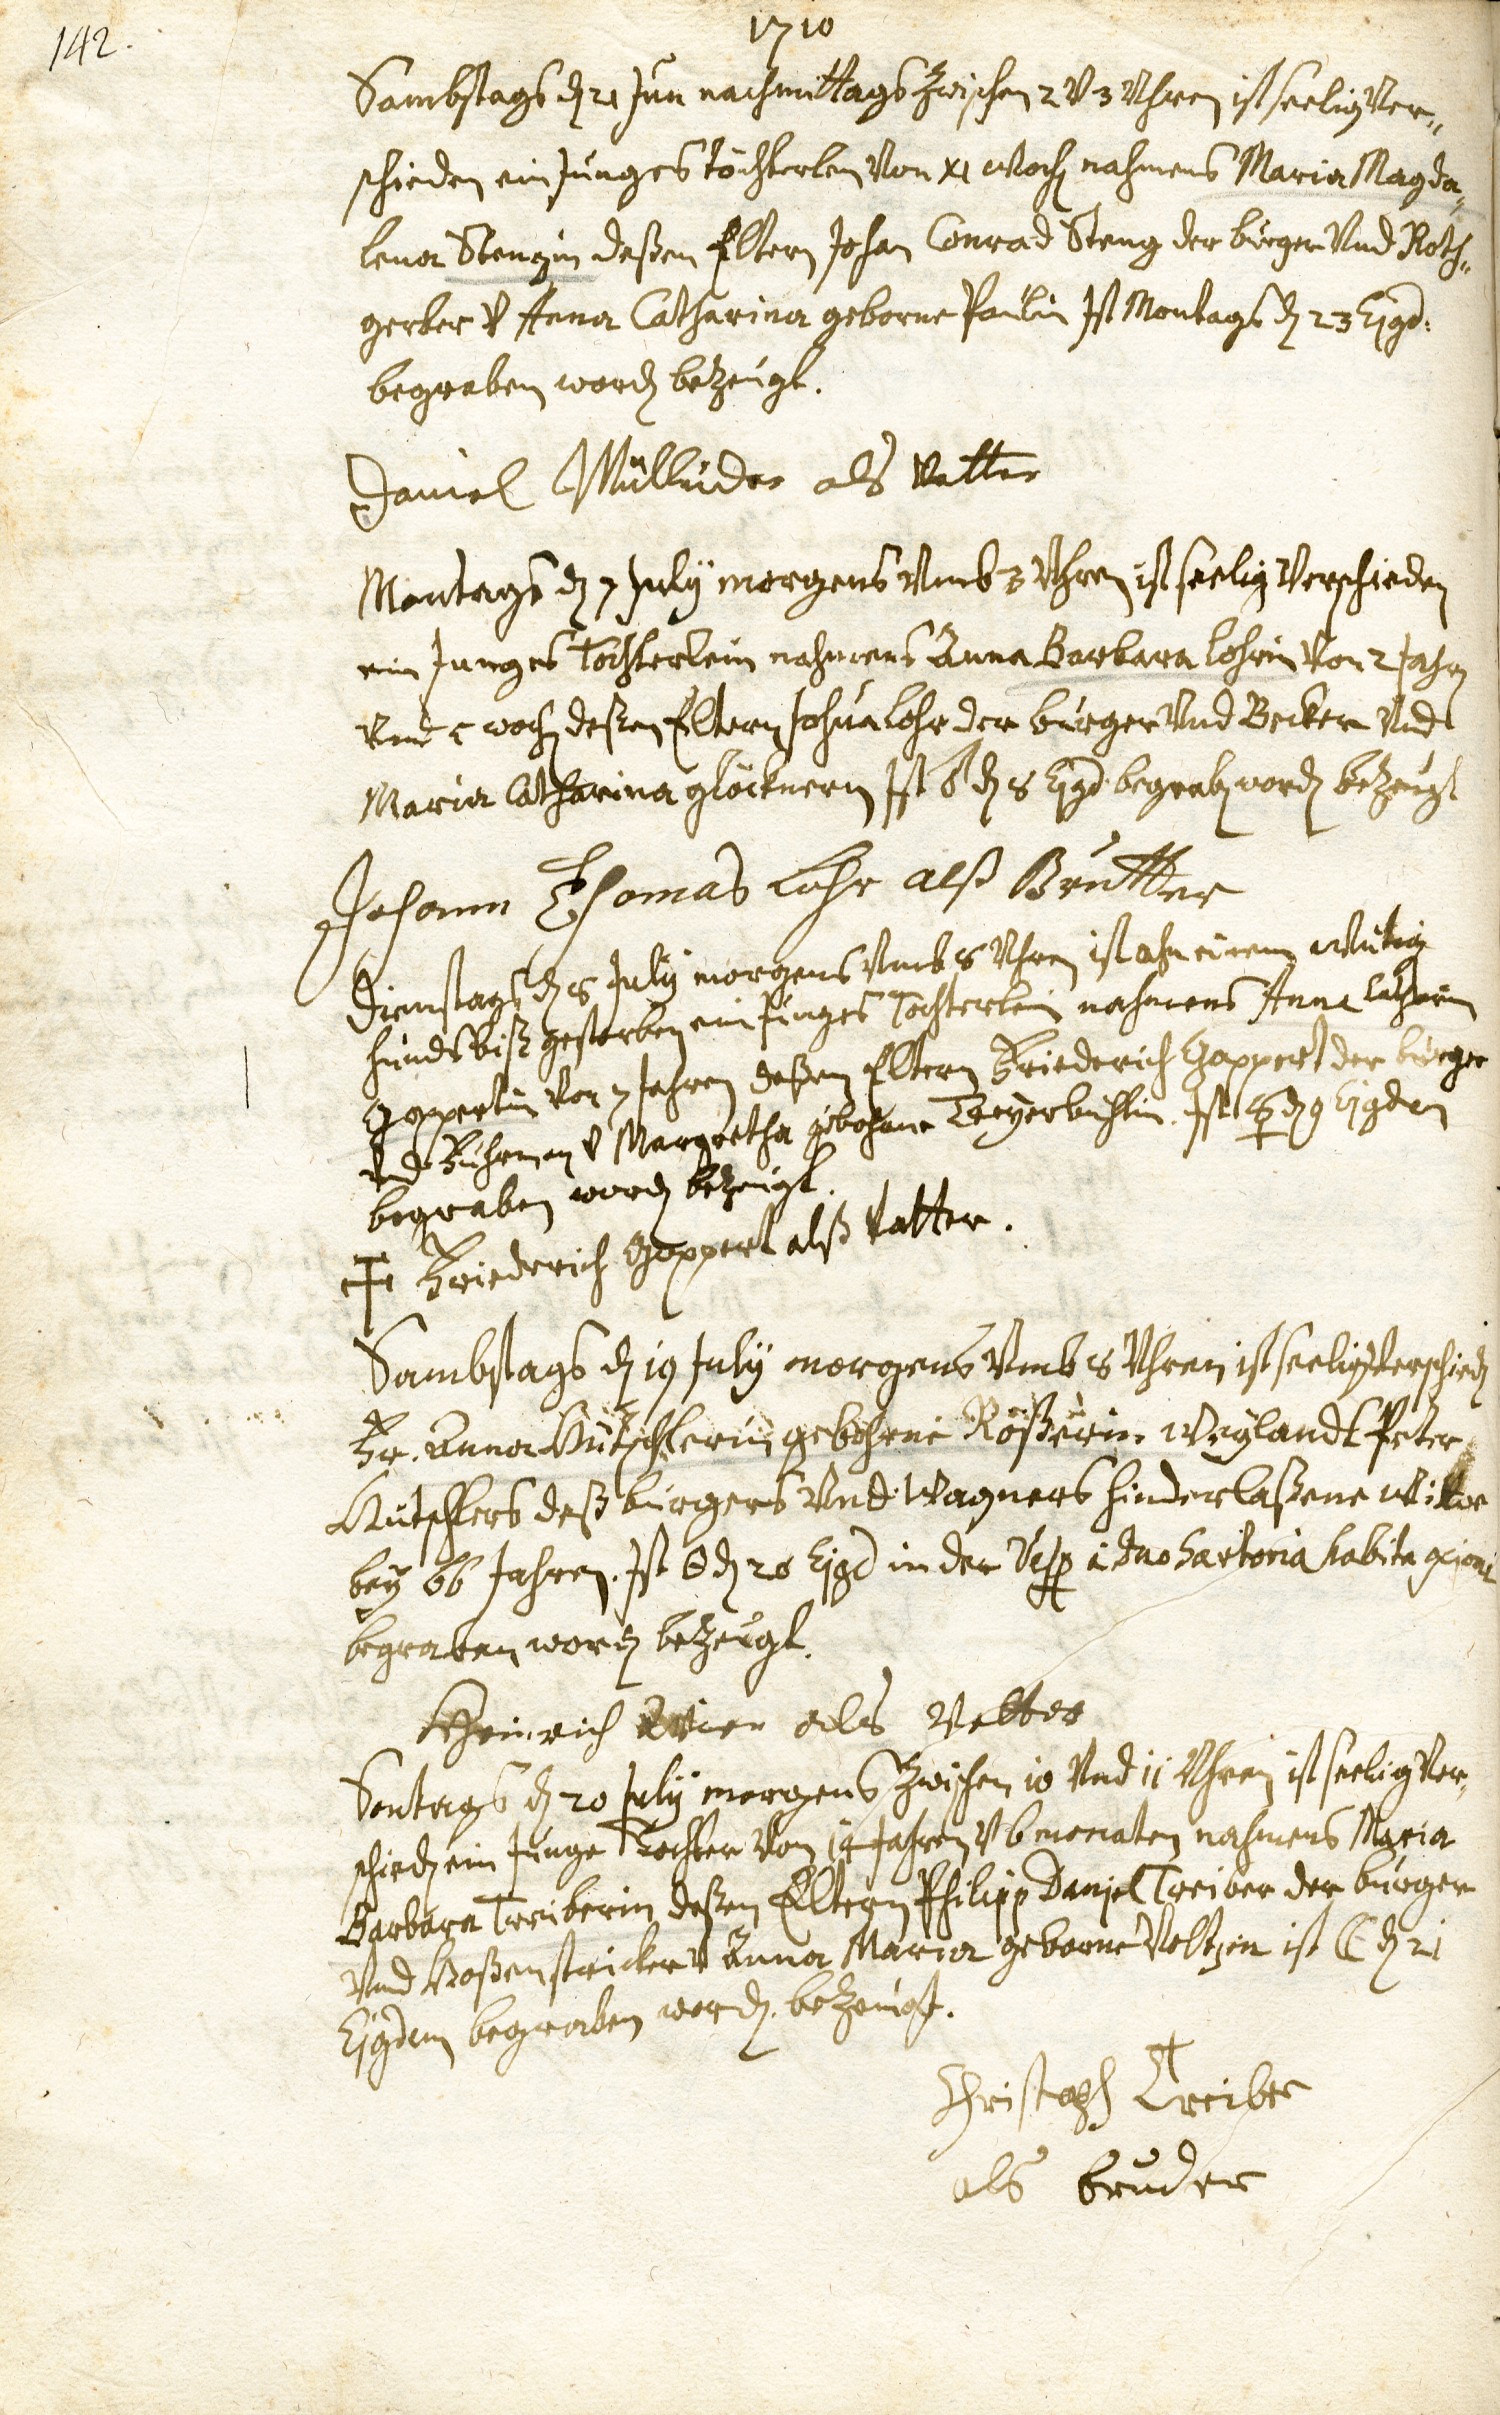 142.
1710
Sambstags d 21 Jun nachmittags Zwischen 2 V 3 Vhren ist seelig Ver„
schieden ein junges töchterlen Von XI woch nahmens Maria Magda„
lena Stengin deßen Eltern Johan Conrad Steng der bürger Vnd Roth„
gerber V Anna Catharina geborne Paulin Ist Montags d 23 Ejgd:
begraben word bezeugt.
Daniel Müllnider als Vatter
Montags d 7 July morgens Vmb 3 Vhren ist seelig Verschieden
ein Junges Tochterlein nahmens Anna Barbara Lohrin Von 2 Jahr
Vnd 5 woch deßen Eltern Johan Lohr der bürger Vnd Becker Vnd
Maria Catharina glöcknern Ist ♂ d 8 Ejgd begrab word bezeugt
Johann Thomas Lohr alß Brutter
Dienstags d 8 July morgens Vmb 8 Vhren ist ahn einem Wütig
hundsbiß gestorben ein Junges Tochterlein nahmens Anna Catharin
Goppertin Von 7 Jahren deßen Eltern Friederich Goppert der bürger
Vnd Fuhrman V Margretha gebohrne Beyerbühlin. Ist ☿ d 9 Ejgdem
begraben word bezeugt.
Friederich Goppert alß Vatter.
Sambstags d 19 July morgens Vmb 8 Vhren ist seelig Verschied
Fr. Anna Kütschlerin gebohrne Rößerin Weylandt Peter
Kütschlers deß bürgers Vnd Wagners hinderlaßene Wittwe
bey 66 Jahren. Ist ☉ d 20 Ejgd in der
begraben word bezeugt.
Heinrich als Vetter
Sontags d 20 July morgens Zwischen 10 Vnd 11 Vhren ist seelig Ver„
schied ein Junge Tochter Von 14 Jahren V 6 monaten nahmens Maria
Barbara Treiberin deßen Eltern Philipp Daniel Treiber der bürger
Vnd Hoßenstricker V Anna Maria geborne Veltzin ist ☾ d 21
Ejgdem begraben word bezeugt.
Christoph Treiber
als bruder